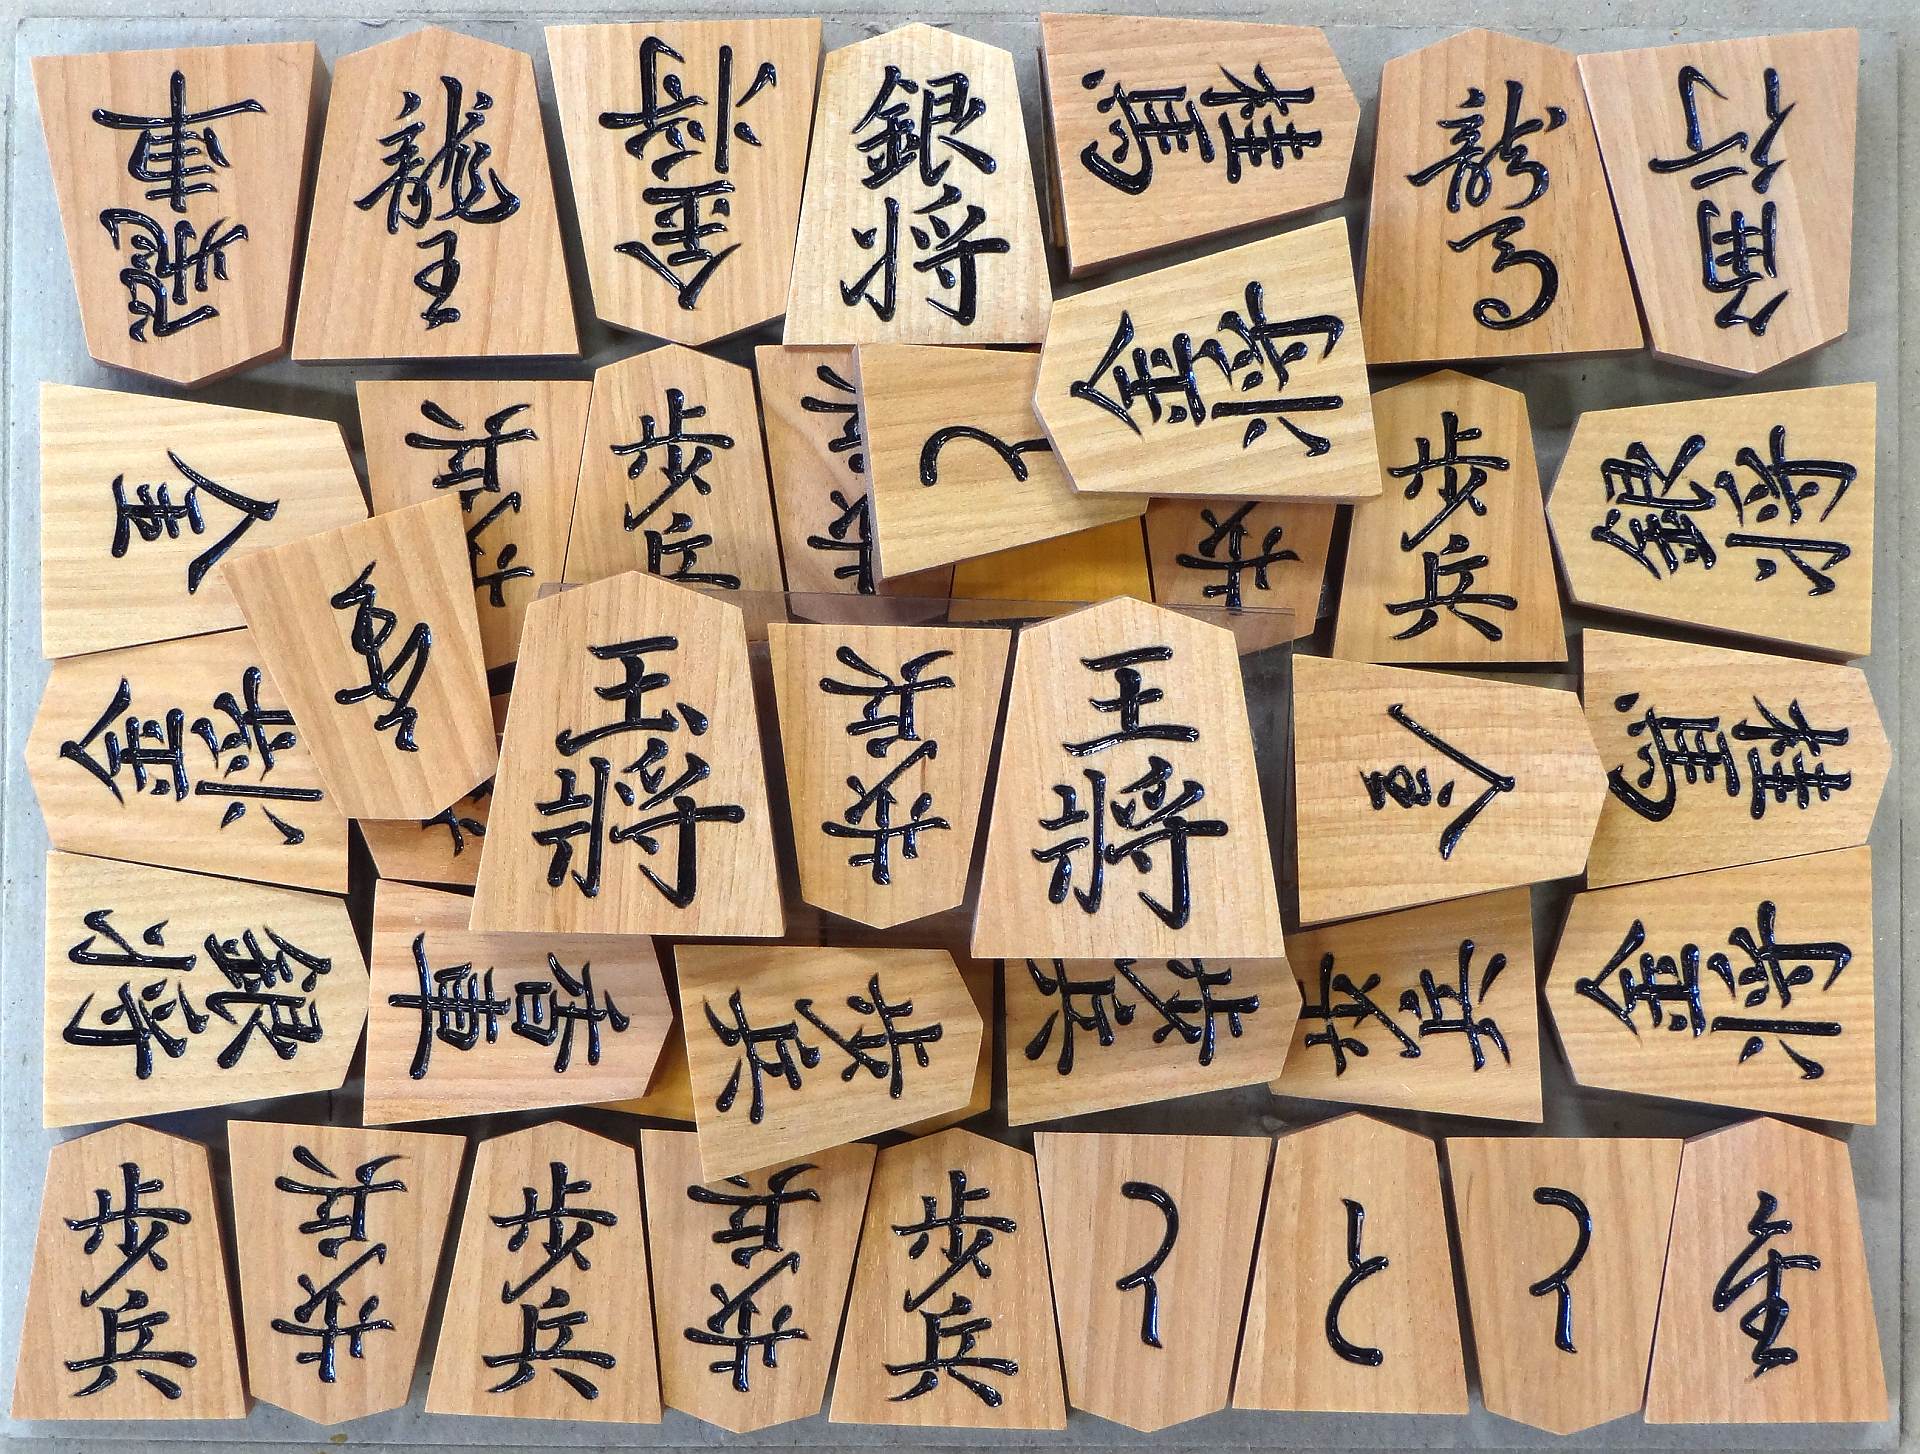 飛車
龍王
金将
銀将
桂馬
龍馬
角行
歩兵
歩兵
歩兵
と
金将
歩
歩兵
銀将
金将
玉將
歩兵
王將
桂馬
銀将
香車
歩兵
歩兵
歩兵
金将
歩兵
歩兵
歩兵
歩兵
歩兵
と
と
と